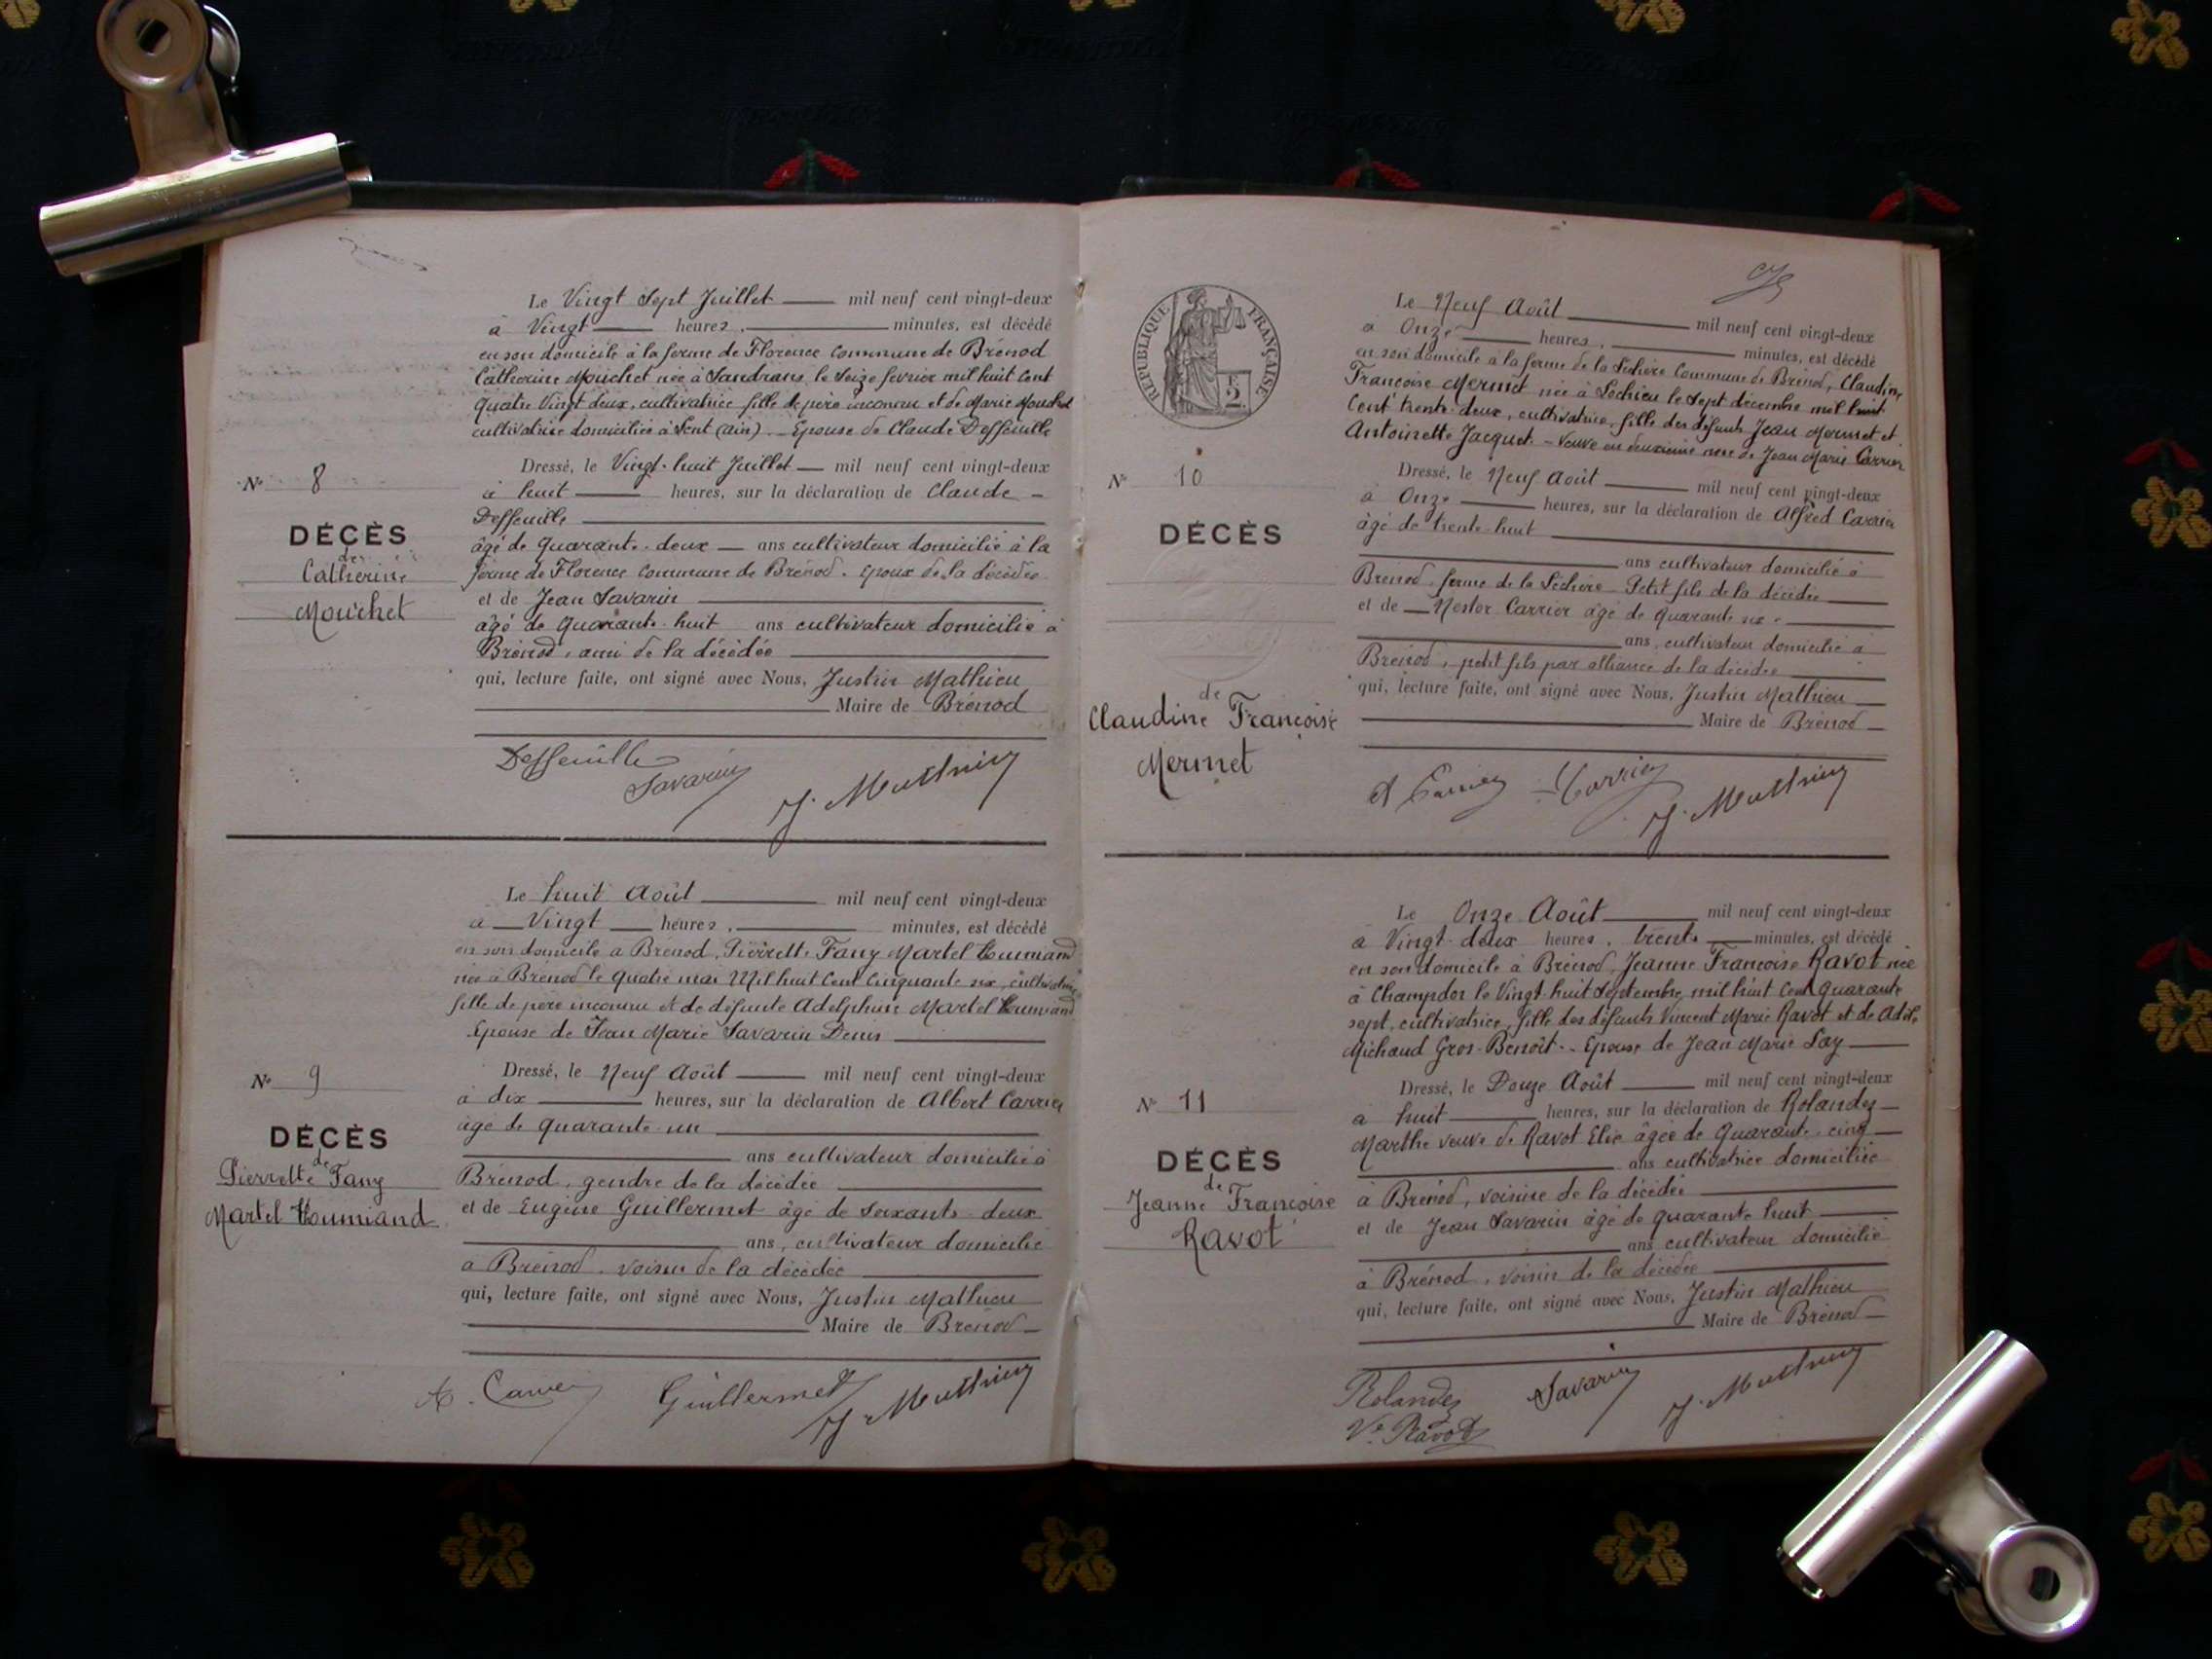 Le Vingt Sept Juillet mil neuf cent vingt-deux
à Vingt heures, minutes, est décédé
en son domicile à la ferme de Florence commune de Brénod
Catherine Mouchet née à Sandrans le Seize fevrier mil huit cent
Quatre Vingt deux, cultivatrice fille de père inconnu et de Marie Mouchet
cultivatrice domiciliée à Lent (Ain). - Epouse de Claude Deffeuille
Dressé, le Vingt-huit Juillet mil neuf cent vingt-deux
à huit heures, sur la déclaration de Claude -
Deffeuille
âgé de Quarante-deux ans cultivateur domicilié à la
ferme de Florence commune de Brénod. époux de la décédée
et de Jean Savarin
âgé de Quarante-huit ans cultivateur domicilié à
Brénod, ami de la décédée
qui, lecture faite, ont signé avec Nous, Justin Mathieu
Maire de Brénod
N° 8
DÉCÈS
de
Catherine
Mouchet
Deffeuille
Savarin
J. Mathieu
Le huit Août mil neuf cent vingt-deux
à Vingt heures, minutes, est décédé
en son domicile à Brénod, Pierrette Fany Martel
née à Brénod le Quatre mai Mil huit Cent Cinquante six, cultivatrice
fille de père inconnu et de défunte Adelphine Martel
Epouse de Jean Marie Savarin Denis
Dressé, le Neuf Août mil neuf cent vingt-deux
à dix heures, sur la déclaration de Albert Carrier
âgé de Quarante-un
ans cultivateur domicilié à
Brénod, gendre de la décédée
et de Eugène Guillermet âgé de Soixante-deux
ans, cultivateur domicilié
à Brénod, voisin de la décédée
qui, lecture faite, ont signé avec Nous, Justin Mathieu
Maire de Brénod
N° 9
DÉCÈS
de
Pierrette Fany
Martel
A. Carrier
Guillermet
J. Mathieu
RÉPUBLIQUE FRANÇAISE
Le Neuf Août mil neuf cent vingt-deux
à Onze heures, minutes, est décédé
en son domicile à la ferme de la Commune de Brénod, Claudine
Françoise Mermet née à Lochieu le Sept décembre mil huit
Cent trente-deux, cultivatrice, fille des défunts Jean Mermet et
Antoinette Jacquet - veuve en deuxième noce de Jean Marie Carrier
Dressé, le Neuf Août mil neuf cent vingt-deux
à Onze heures, sur la déclaration de Alfred Carrier
âgé de trente-huit
ans cultivateur domicilié à
Brénod, ferme de la Petit fils de la décédée
et de Nestor Carrier âgé de Quarante six
ans, cultivateur domicilié à
Brénod, petit fils par alliance de la décédée
qui, lecture faite, ont signé avec Nous, Justin Mathieu
Maire de Brénod
N° 10
DÉCÈS
de
Claudine Françoise
Mermet
A Carrier
Carrier
J. Mathieu
Le Onze Août mil neuf cent vingt-deux
à Vingt-deux heures, trente minutes, est décédé
en son domicile à Brénod, Jeanne Françoise Ravot née
à Champdor le Vingt-huit Septembre mil huit Cent Quarante
sept, cultivatrice, fille des défunts Vincent Marie Ravot et de Adèle
Michaud Gros-Benoit - Epouse de Jean Marie Lay
Dressé, le Douze Août mil neuf cent vingt-deux
à huit heures, sur la déclaration de Rolandez
Marthe veuve de Ravot Elie âgée de Quarante-cinq
ans cultivatrice domiciliée
à Brénod, voisine de la décédée
et de Jean Savarin âgé de quarante huit
ans cultivateur domicilié
à Brénod, voisin de la décédée
qui, lecture faite, ont signé avec Nous, Justin Mathieu
Maire de Brénod
N° 11
DÉCÈS
de
Jeanne Françoise
Ravot
Rolandez
Vve Ravot
Savarin
J. Mathieu